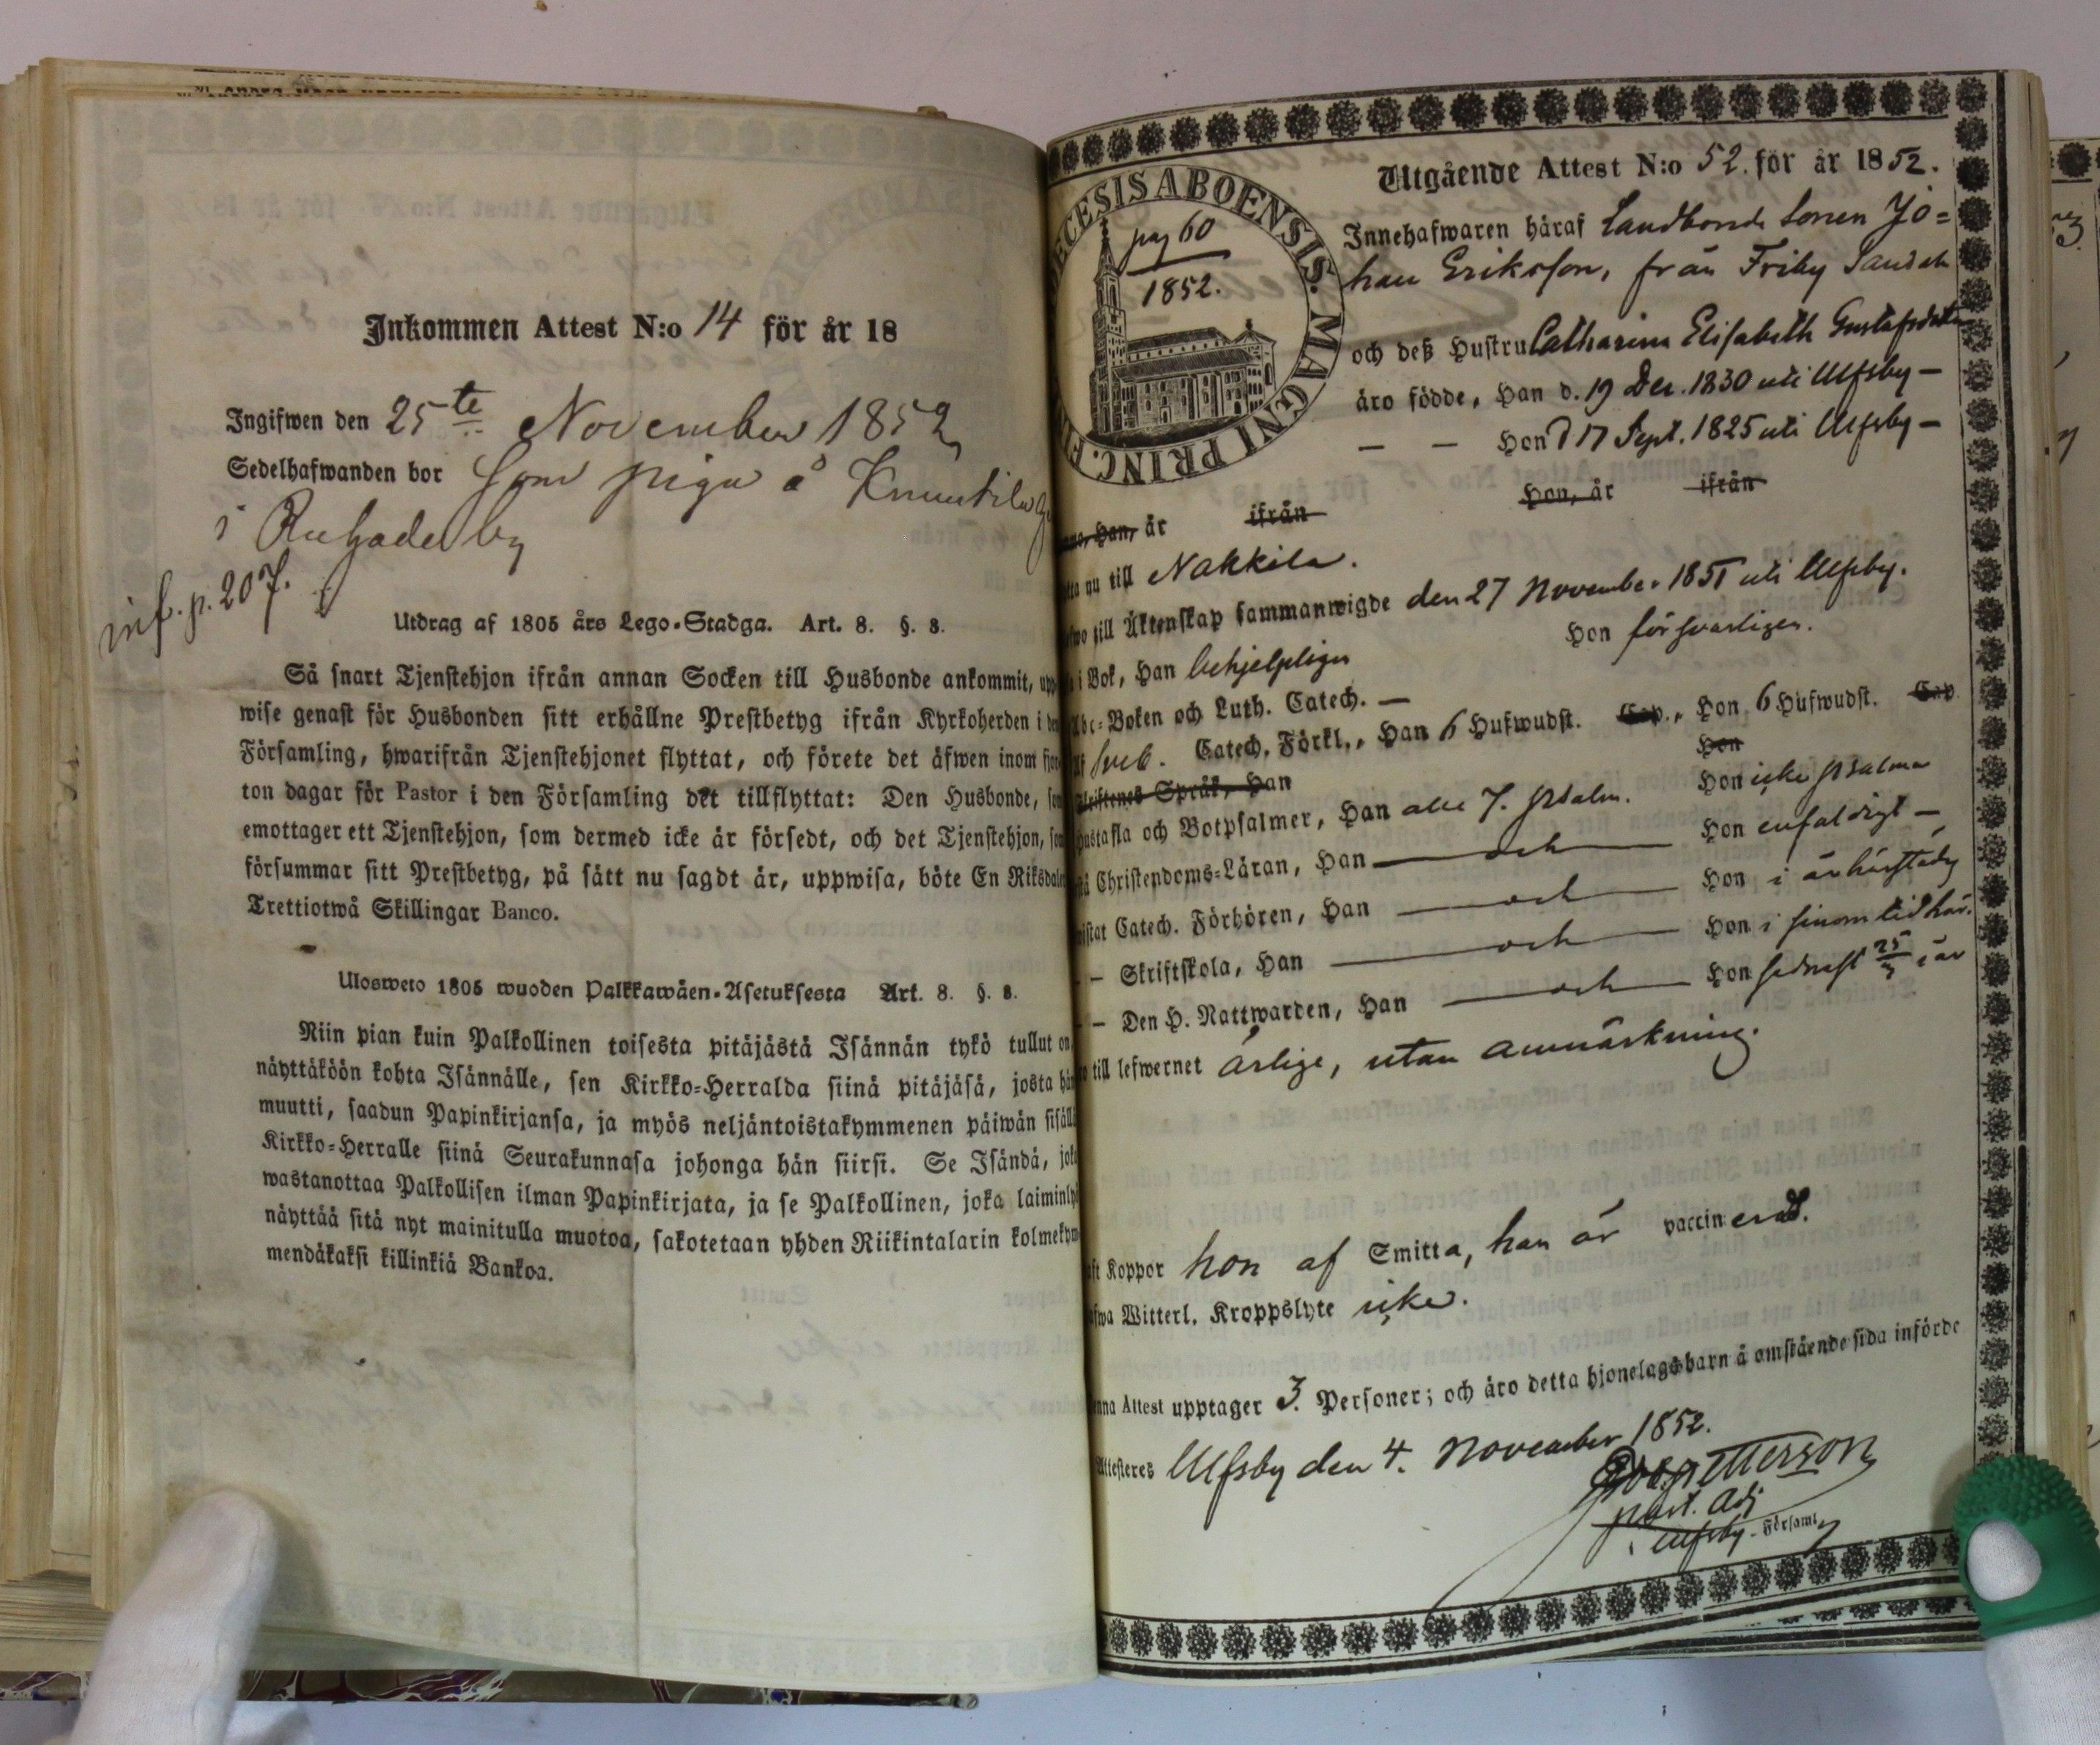 Inkommen Attest N:o 14 för år 18
Ingifwen den 25te November 1852
Sedelhafwanden bor som piga å Knuutila
i Ruhade by
inf. p. 207.
Utdrag af 1805 års Lego-Stadga. Art. 8. §. 8.
Så snart Tjenstehjon ifrån annan Socken till Husbonde ankommit, upp
wise genast för Husbonden sitt erhållne Prestbetyg ifrån Kyrkoherden i den
Församling, hwarifrån Tjenstehjonet flyttat, och förete det äfwen inom fjor
ton dagar för Pastor i den Församling det tillflyttat: Den Husbonde, som
emottager ett Tjenstehjon, som dermed icke är försedt, och det Tjenstehjon, som
försummar sitt Prestbetyg, på sätt nu sagdt är, uppwisa, böte En Riksdaler
Trettiotwå Skillingar Banco.
Ulosweto 1805 wuoden Palkkawäen-Asetuksesta Art. 8. §. 8.
Niin pian kuin Palkollinen toisesta pitäjästä Isännän tykö tullut on
näyttäköön kohta Isännälle, sen Kirkko-Herralda siinä pitäjäsä, josta hän
muutti, saadun Papinkirjansa, ja myös neljäntoistakymmenen päiwän sisällä
Kirkko-Herralle siinä Seurakunnasa johonga hän siirsi. Se Isändä, joka
wastanottaa Palkollisen ilman Papinkirjata, ja se Palkollinen, joka laiminlyö
näyttää sitä nyt mainitulla muotoa, sakotetaan yhden Riikintalarin kolmekym
mendäkaksi killinkiä Bankoa.
ECESIS ABOENSIS. MAGNI PRINC. FI
pag 60
1852.
Utgående Attest N:o 52. för år 1852.
Innehafwaren häraf Landbonde Sonen Jo=
han Eriksson, från Friby Sandeh
och deß Hustru Catharina Elisabeth Gustafsdotter
äro födde, Han d. 19 Dec. 1830 uti Ulfsby —
— — Hon d 17 Sept. 1825 uti Ulfsby —
Han, är ifrån Hon, är ifrån
tta nu till Nakkila.
till Äktenskap sammanwigde den 27 November 1851 uti Ulfsby.
i Bok, Han behjelpligen Hon försvarligen.
Abc-Boken och Luth. Catech. —
Sveb. Catech. Förkl., Han 6 Hufwudst. Cap., Hon 6 Hufwudst. Cap.
Skriftenes Språk, Han Hon
Hustafla och Botpsalmer, Han alla 7. psalm. Hon icke psalmer
Christendoms-Läran, Han — och — Hon enfaldigt —
istat Catech. Förhören, Han — och — Hon i år härstädes
— Skriftskola, Han — och — Hon i sinom tid här.
— Den H. Nattwarden, Han — och — Hon sednast 25 i år
till lefwernet ärlige, utan anmärkning.
ft Koppor hon af Smitta, han är vaccinerad.
afwa Witterl. Kroppslyte icke.
nna Attest upptager 3. Personer; och äro detta hjonelags barn å omstående sida införde
Attesteres Ulfsby den 4. November 1852.
Past. Adj
i Ulfsby Församl.